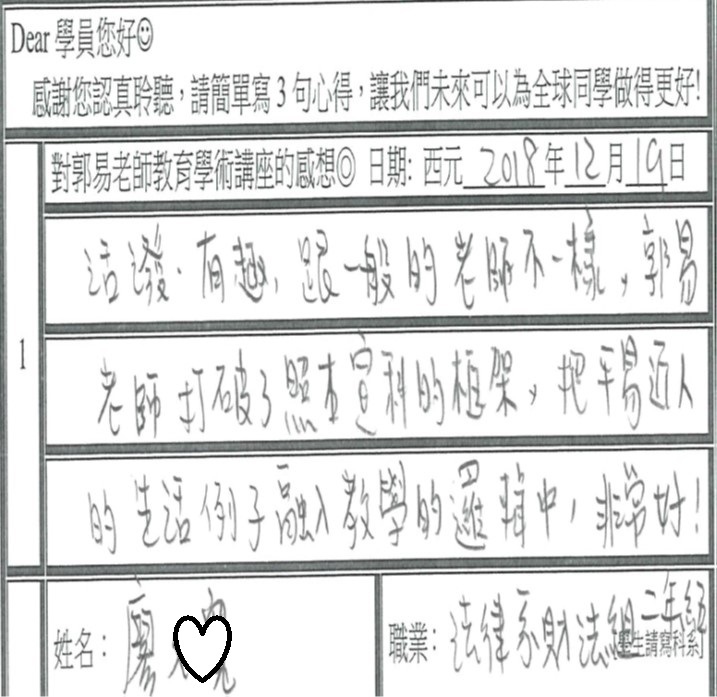 Dear 學員您好☺
感謝您認真聆聽，請簡單寫 3 句心得，讓我們未來可以為全球同學做得更好!
對郭易老師教育學術講座的感想◎ 日期: 西元 2018 年 12 月 19 日
1
活潑.有趣, 跟一般的老師不一樣, 郭易
老師打破了照本宣科的框架, 把平易近人
的生活例子融入教學的邏輯中, 非常好!
姓名: 廖
職業: 法律系財法組二年級
[學生請寫科系]